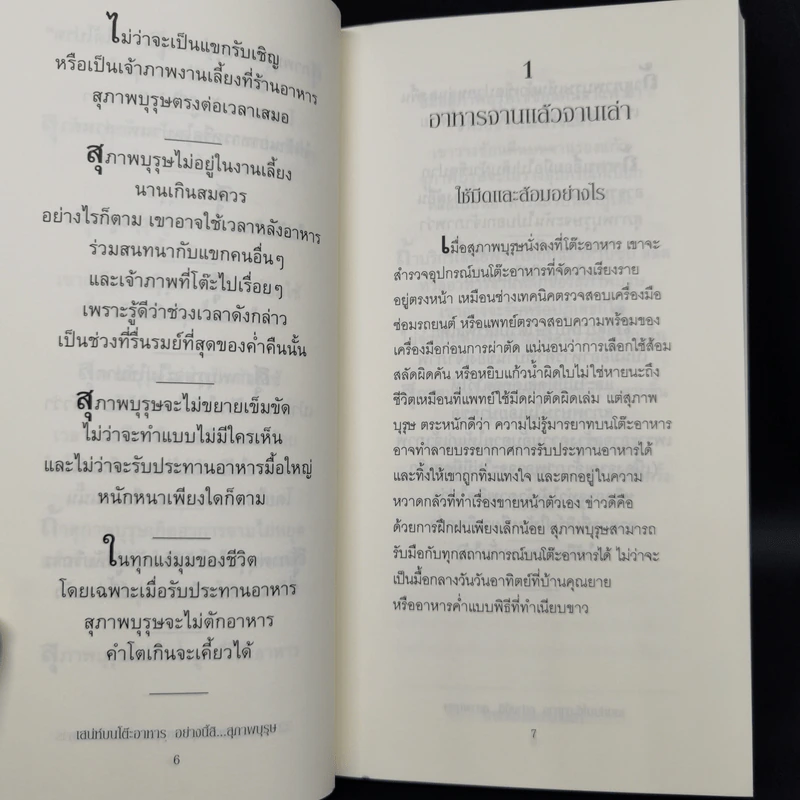 ไม่ว่าจะเป็นแขกรับเชิญ
หรือเป็นเจ้าภาพงานเลี้ยงที่ร้านอาหาร
สุภาพบุรุษตรงต่อเวลาเสมอ
สุภาพบุรุษไม่อยู่ในงานเลี้ยง
นานเกินสมควร
อย่างไรก็ตาม เขาอาจใช้เวลาหลังอาหาร
ร่วมสนทนากับแขกคนอื่นๆ
และเจ้าภาพที่โต๊ะไปเรื่อยๆ
เพราะรู้ดีว่าช่วงเวลาดังกล่าว
เป็นช่วงที่รื่นรมย์ที่สุดของค่ำคืนนั้น
สุภาพบุรุษจะไม่ขยายเข็มขัด
ไม่ว่าจะทำแบบไม่มีใครเห็น
และไม่ว่าจะรับประทานอาหารมื้อใหญ่
หนักหนาเพียงใดก็ตาม
ในทุกแง่มุมของชีวิต
โดยเฉพาะเมื่อรับประทานอาหาร
สุภาพบุรุษจะไม่ตักอาหาร
คำโตเกินจะเคี้ยวได้
เสน่ห์บนโต๊ะอาหาร อย่างนี้สิ...สุภาพบุรุษ
6
1
อาหารจานแล้วจานเล่า
ใช้มีดและส้อมอย่างไร
เมื่อสุภาพบุรุษนั่งลงที่โต๊ะอาหาร เขาจะ
สำรวจอุปกรณ์บนโต๊ะอาหารที่จัดวางเรียงราย
อยู่ตรงหน้า เหมือนช่างเทคนิคตรวจสอบเครื่องมือ
ซ่อมรถยนต์ หรือแพทย์ตรวจสอบความพร้อมของ
เครื่องมือก่อนการผ่าตัด แน่นอนว่าการเลือกใช้ส้อม
สลัดผิดคัน หรือหยิบแก้วน้ำผิดใบไม่ใช่หายนะถึง
ชีวิตเหมือนที่แพทย์ใช้มีดผ่าตัดผิดเล่ม แต่สุภาพ
บุรุษ ตระหนักดีว่า ความไม่รู้มารยาทบนโต๊ะอาหาร
อาจทำลายบรรยากาศการรับประทานอาหารได้
และทิ้งให้เขาถูกทิ่มแทงใจ และตกอยู่ในความ
หวาดกลัวที่ทำเรื่องขายหน้าตัวเอง ข่าวดีคือ
ด้วยการฝึกฝนเพียงเล็กน้อย สุภาพบุรุษสามารถ
รับมือกับทุกสถานการณ์บนโต๊ะอาหารได้ ไม่ว่าจะ
เป็นมื้อกลางวันวันอาทิตย์ที่บ้านคุณยาย
หรืออาหารค่ำแบบพิธีที่ทำเนียบขาว
7